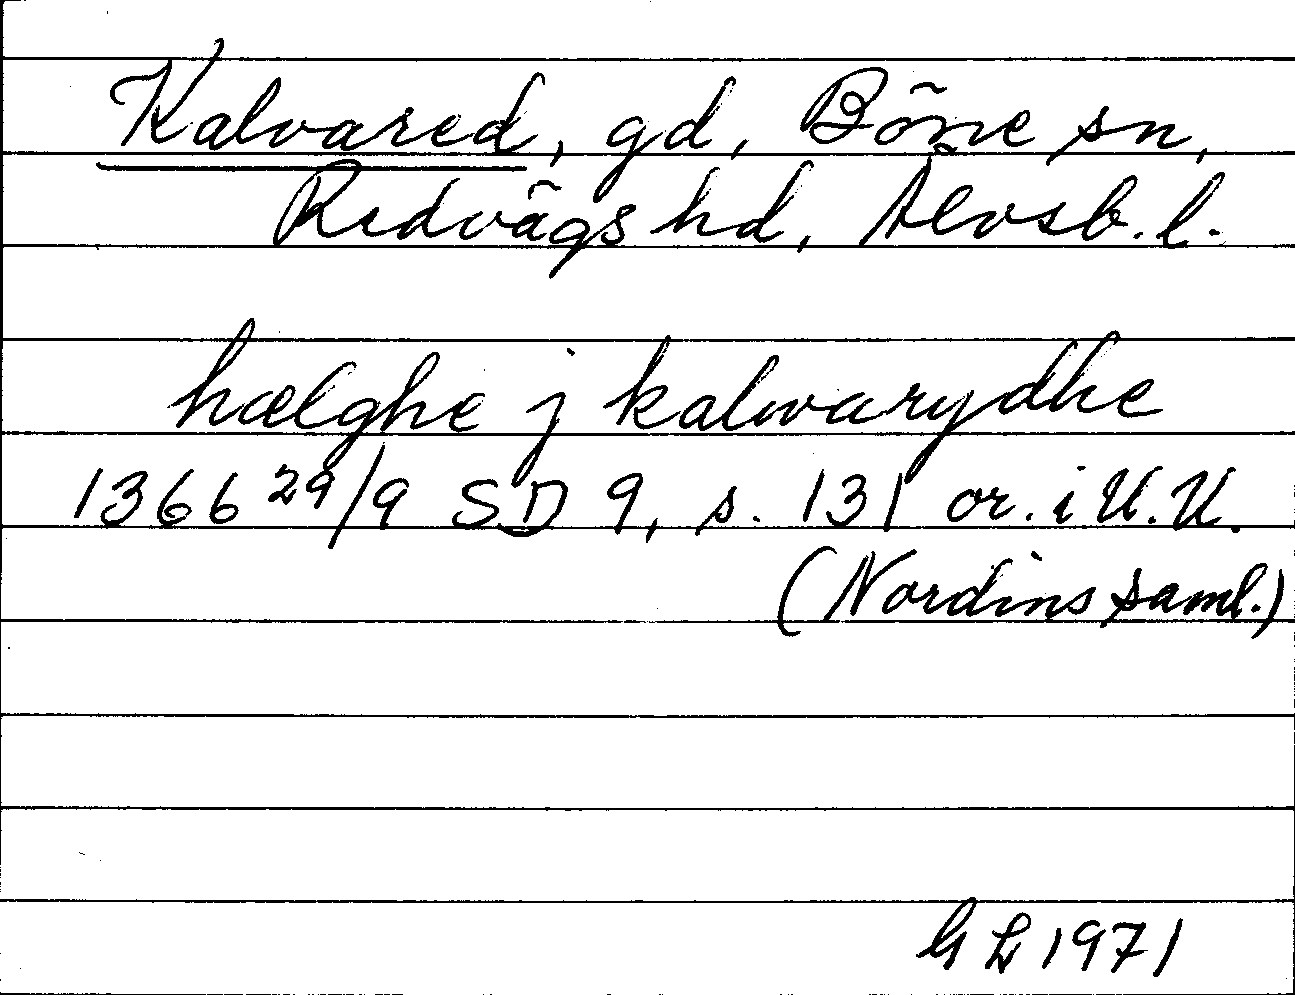 Kalvared, gd, Böne sn,
Redvägs hd, Älvsb. l.
hælghe j kalwarydhe
1366 29/9 SD 9, s. 131 or. i U.U.
(Nordins saml.)
GL 1971